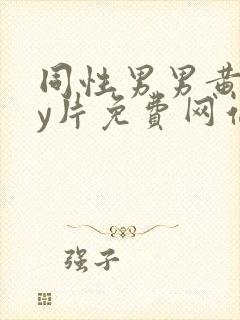 同性男男黄
y片免费网
强子